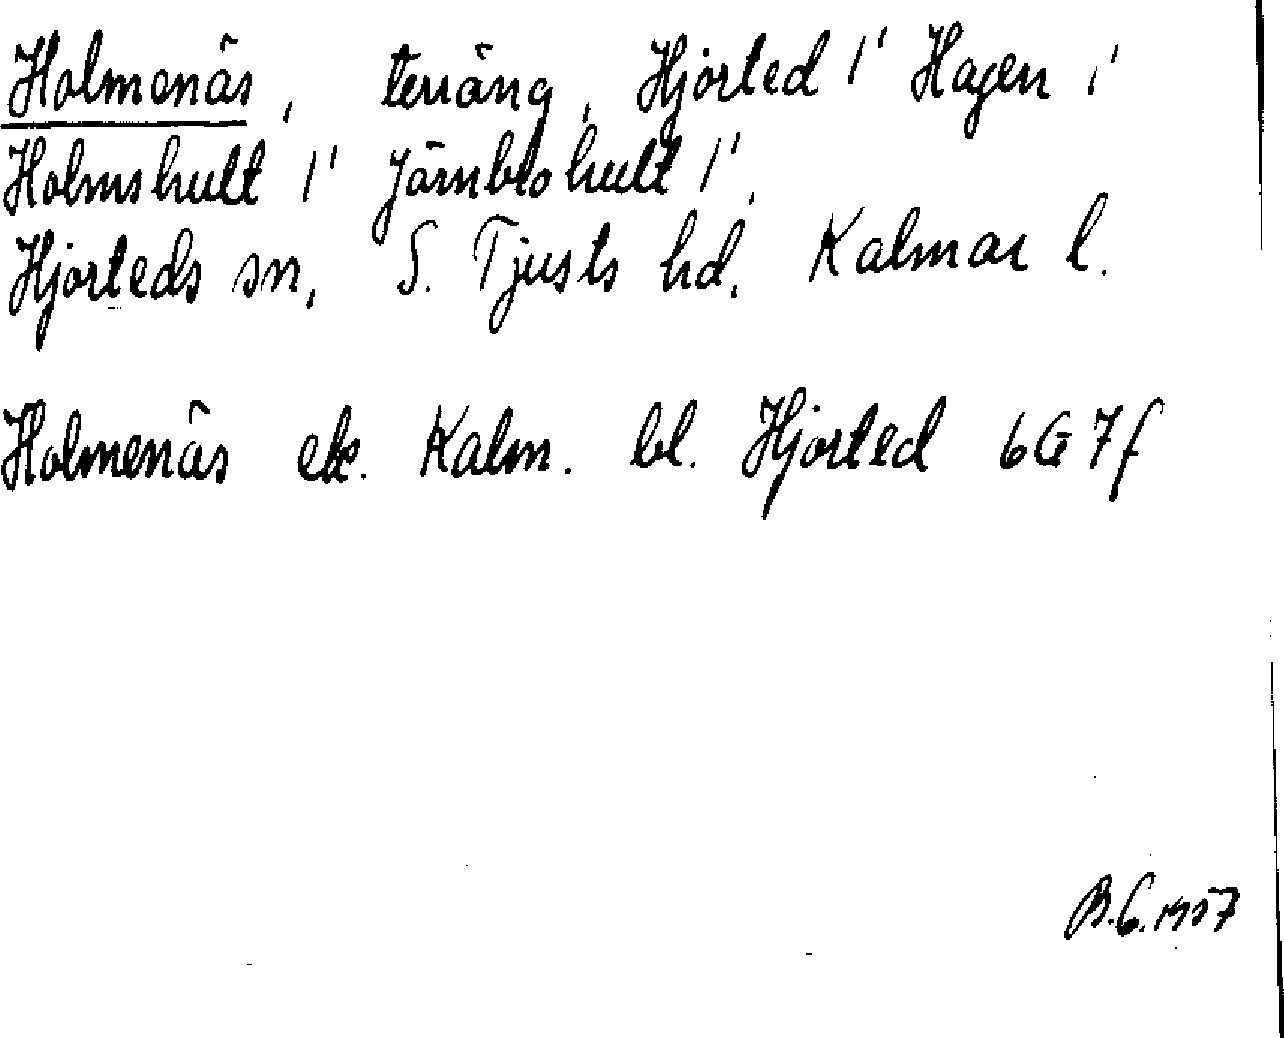 Holmenäs, terräng, Hjorted 1' Hagen 1'
Holmshult 1' Järnblohult 1',
Hjorteds sn, S. Tjusts hd, Kalmar l.
Holmenäs ek. Kalm. bl. Hjorted 6G 7f
B.G. 1957